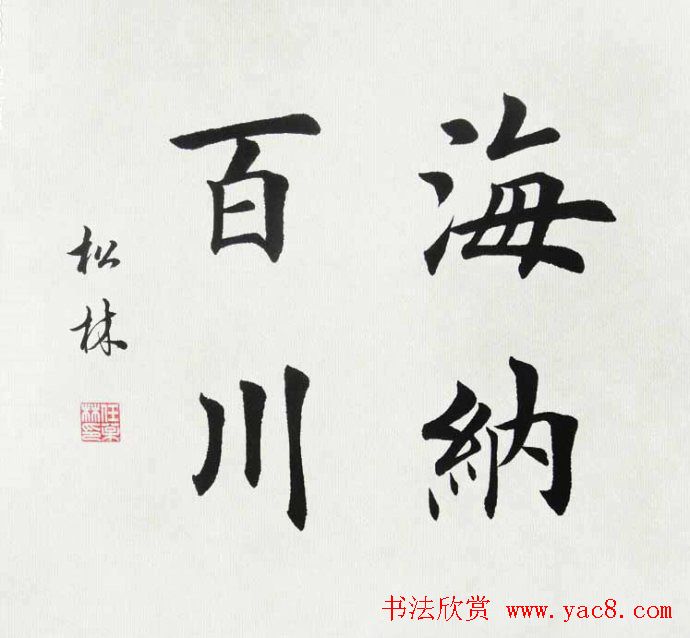 海納
百川
松林
书法欣赏 www.yac8.com